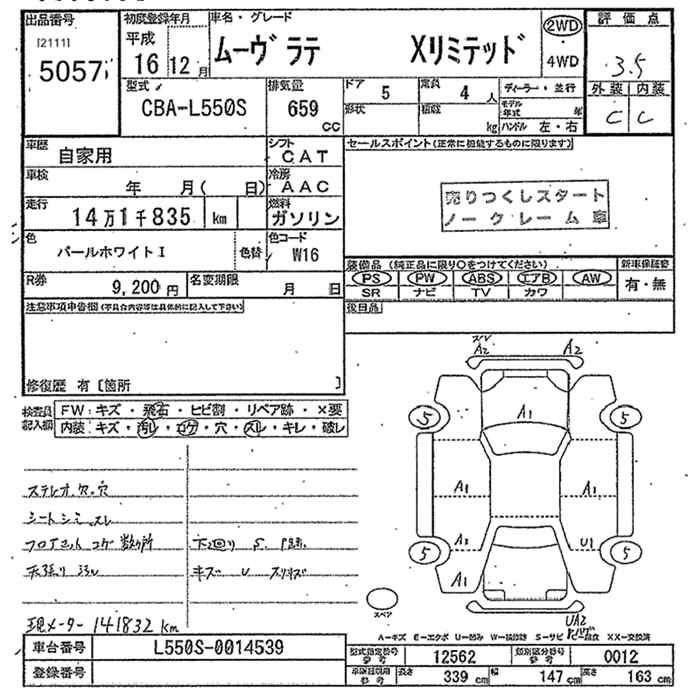 出品番号 初度登録年月 車名・グレード 評価点
[2111]
5057 平成 16 12月 ムーヴラテ Xリミテッド 2WD 4WD 3.5
型式 排気量 ドア 5 定員 4 人 ディーラー・並行 外装 内装
CBA-L550S 659 cc 形状 積載 kg モデル年式 年 ハンドル 左・右 C C
車歴 自家用 シフト CAT セールスポイント(正常に機能するものに限ります)
車検 年 月( 日) 冷房 AAC
走行 14万1千835 km 燃料 ガソリン
売りつくしスタート
ノークレーム車
色 パールホワイトI 色替 色コード W16
装備品(純正品に限り○をつけてください) 新車保証書
R券 9,200円 名変期限 月 日 PS PW ABS エアB AW 有・無
SR ナビ TV カワ
注意事項申告欄(不具合内容等は具体的に記入して下さい) 後日品
修復歴 有 [箇所 ]
検査員記入欄 FW:キズ・飛石・ヒビ割・リペア跡・×要
内装:キズ・汚レ・コゲ・穴・スレ・キレ・破レ
A2 A2
A1
5 5
A1 A1
A2 U1
5 5
A1
UA2
スペア
ステレオ欠.穴
シートシミ スレ
フロアマット コゲ 数ヶ所 下廻り S.
天張り キズ U
現メーター 141832 km
A-キズ E-エクボ U-凹み S-サビ XX-交換済
車台番号 L550S-0014539 型式指定番号 参考 12562 類別区分番号 参考 0012
登録番号 参考 長さ 339 cm 幅 147 cm 高さ 163 cm